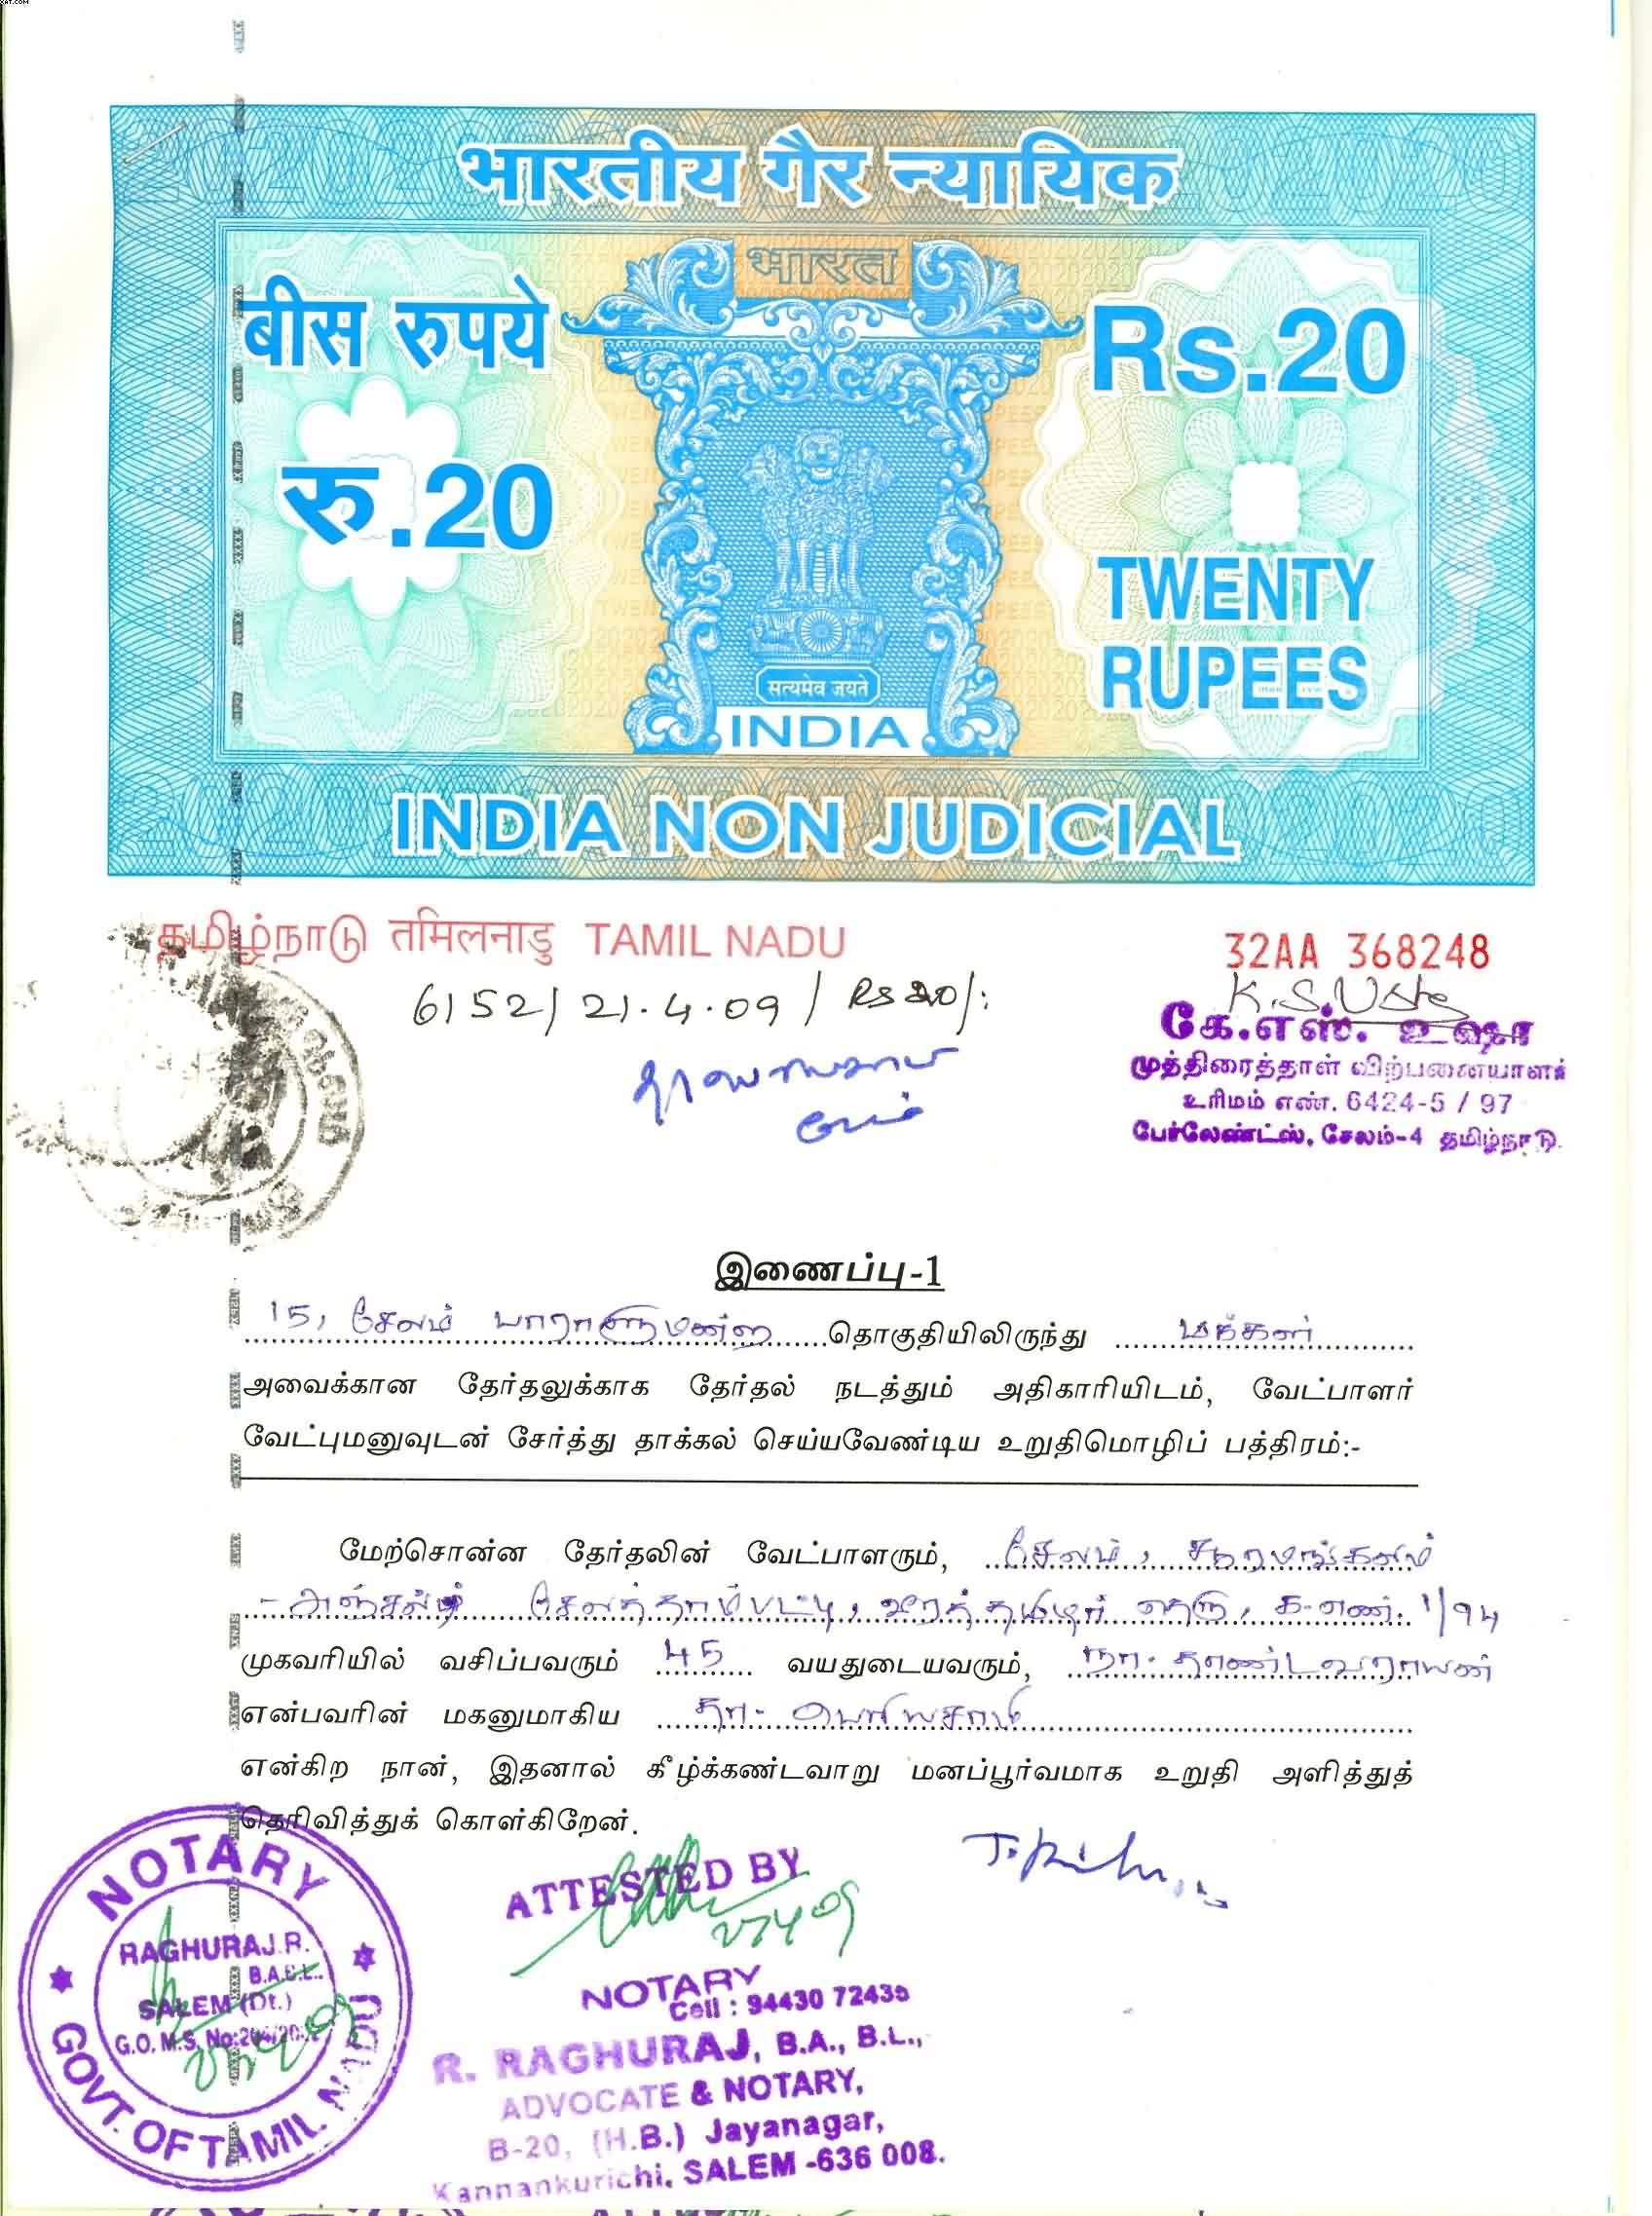 भारतीय गैर न्यायिक
भारत
बीस रुपये
रु.20
Rs.20
TWENTY
RUPEES
सत्यमेव जयते
INDIA
INDIA NON JUDICIAL
தமிழ்நாடு तमिलनाडु TAMIL NADU
32AA 368248
6152/ 21.4.09 / Rs 20/:
K.S.Usha
கே.எஸ். உஷா
முத்திரைத்தாள் விற்பனையாளர்
உரிமம் எண். 6424-5 / 97
பேர்லேண்ட்ஸ், சேலம்-4 தமிழ்நாடு.
இணைப்பு-1
15, சேலம் பாராளுமன்ற தொகுதியிலிருந்து மக்கள்
அவைக்கான தேர்தலுக்காக தேர்தல் நடத்தும் அதிகாரியிடம், வேட்பாளர்
வேட்புமனுவுடன் சேர்த்து தாக்கல் செய்யவேண்டிய உறுதிமொழிப் பத்திரம்:-
மேற்சொன்ன தேர்தலின் வேட்பாளரும், சேலம், சூரமங்கலம்
அஞ்சல் சேலத்தாம்பட்டி, வீரத்தமிழர் தெரு, க.எண். 1/94
முகவரியில் வசிப்பவரும் 45 வயதுடையவரும், நா. தாண்டவராயன்
என்பவரின் மகனுமாகிய தா. பெரியசாமி
என்கிற நான், இதனால் கீழ்க்கண்டவாறு மனப்பூர்வமாக உறுதி அளித்துத்
தெரிவித்துக் கொள்கிறேன்.
NOTARY
RAGHURAJ.R.
B.A.B.L.
SALEM (Dt.)
G.O. M.S. No:
GOVT. OF TAMIL NADU
ATTESTED BY
NOTARY
Cell : 94430 72435
R. RAGHURAJ, B.A., B.L.,
ADVOCATE & NOTARY,
B-20, (H.B.) Jayanagar,
Kannankurichi, SALEM -636 008.